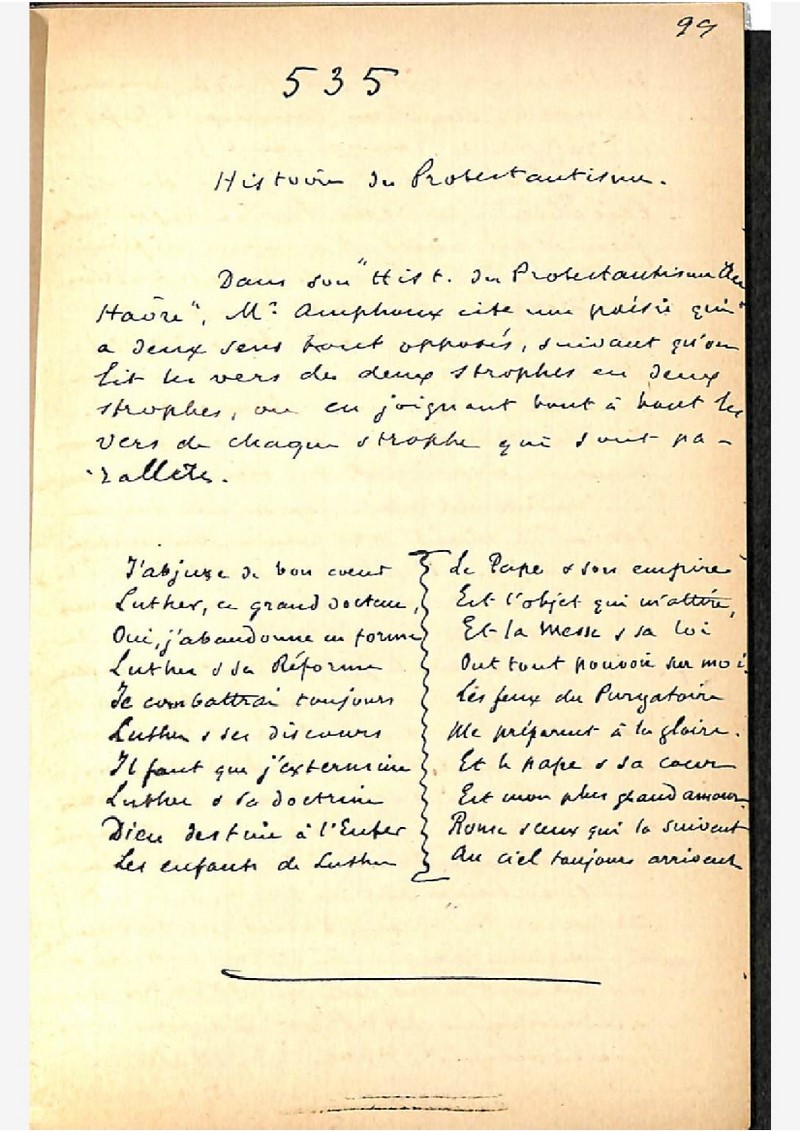 99
535
Histoire du Protestantisme.
Dans son "Hist. du Protestantisme au
Havre", Mr. Amphoux cite une poésie qui
a deux sens tout opposés, suivant qu'on
lit les vers des deux strophes en deux
strophes, ou en joignant bout à bout les
vers de chaque strophe qui sont pa-
rallèles.
J'abjure de bon coeur
Luther, ce grand docteur,
Oui, j'abandonne en forme
Luther & sa Réforme
Je combattrai toujours
Luther & ses discours
Il faut que j'extermine
Luther & sa doctrine
Dieu destine à l'Enfer
Les enfants de Luther
Le Pape & son empire
Est l'objet qui m'attire,
Et la Messe & sa loi
Ont tout pouvoir sur moi.
Les feux du Purgatoire
Me préparent à la gloire.
Et le pape & sa cour
Est mon plus grand amour.
Rome & ceux qui la suivent
Au ciel toujours arrivent